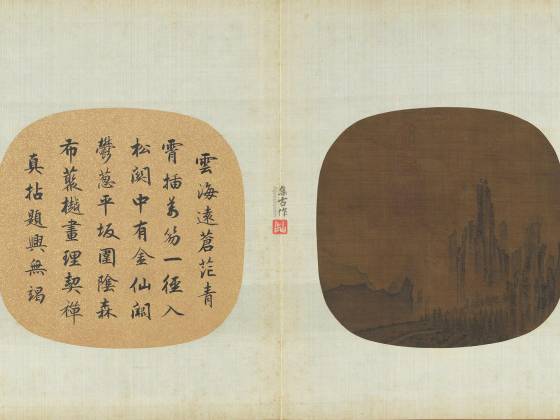 雲海遠蒼茫青
霄插萬笏一徑入
松關中有金仙闕
鬱蔥平坂圍陰森
布叢樾畫理契禪
真拈題興無竭